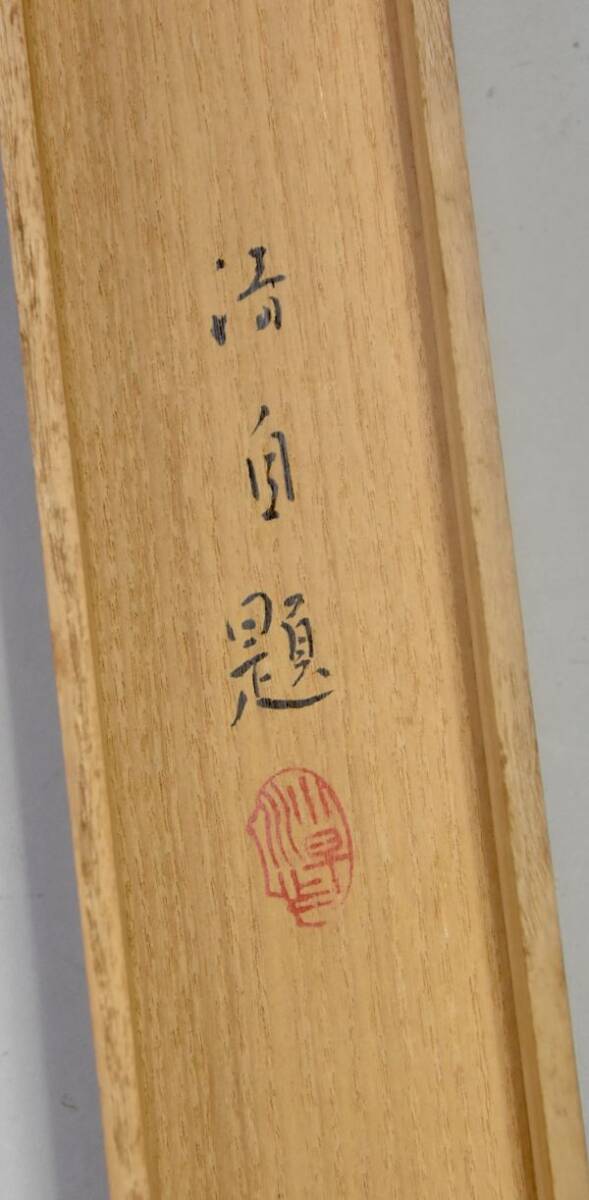 清自題